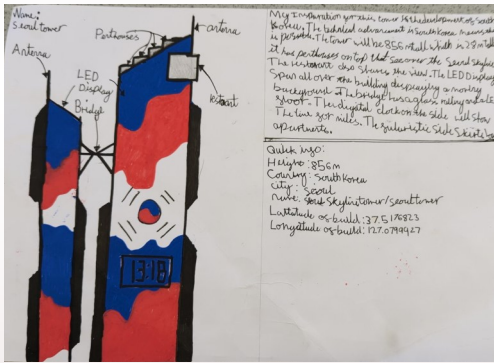 Name:
Seoul tower
Antenna
Penthouses
antenna
LED
Display
Bridge
restaurant
13:18
My Inspiration for this tower is the development of South
Korea. The technical advancement in South Korea means
is possible. The tower will be 856m tall which is 28m tall
it has penthouses on top that see over the Seoul skyline
The restaurant also shares the view. The LED Display
Span all over the building displaying a
background. The bridge has a glass and a
floor. The digital clock on the side will show
The time for miles. The futuristic Side Skirts
apartments.
Quick info:
Height: 856m
Country: South Korea
city: Seoul
name: Seoul Skyline tower/seoul tower
Lattitude of build: 37.5176823
Longitude of build: 127.0799427